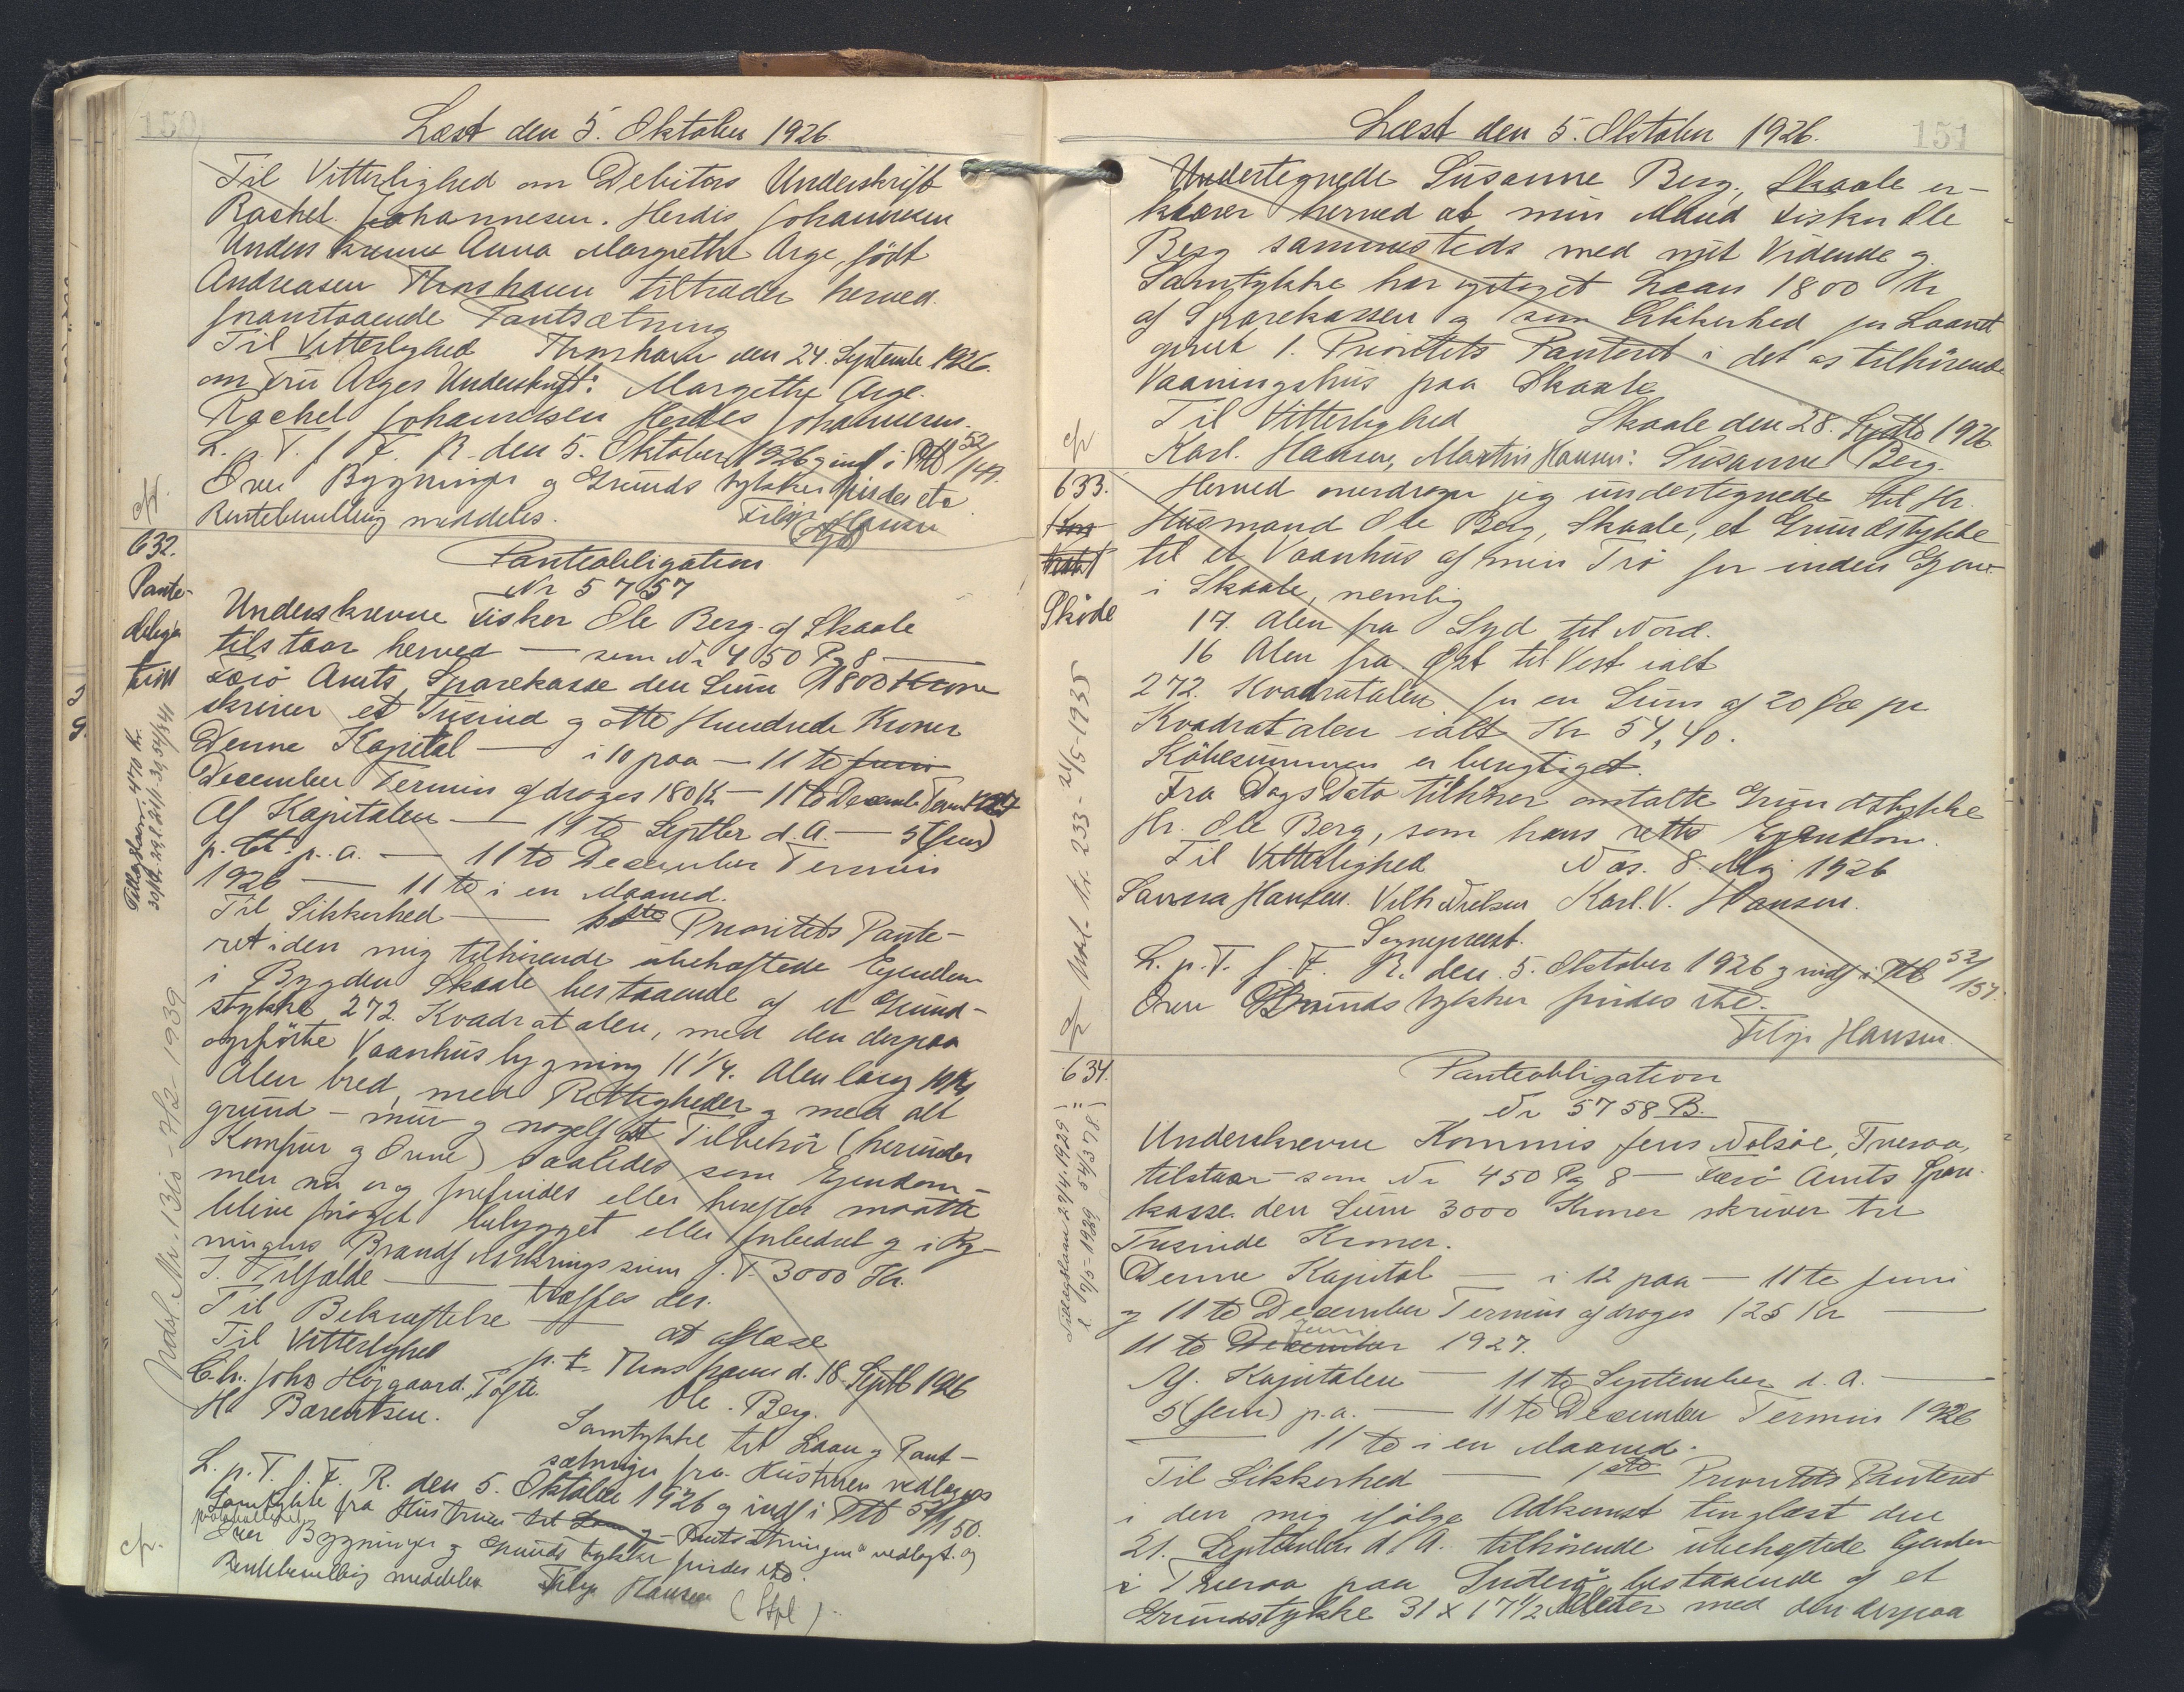 150
Læst den 5. Oktober 1926.
Til Vitterlighed om Debitors Underskrift
Rachel Johannesen. Herdis Johannesen
Underskrevne Anna Margrethe Arge, født
Andreasen Thorshavn tiltræder herved
foranstaaende Pantsætning
Til Vitterlighed Thorshavn den 24. Septemb 1926.
om Fru Arges Underskrift: Margrethe Arge.
Rachel Johannesen Herdis Johannesen.
L. p. T. f. F. R. den 5. Oktober 1926 g indf i Ptb 52/149.
Over Bygninger g Grundstykker findes etc
Rentebevilling meddeles. Filip Hansen
cfr.
632.
Pante-
obliga
tion
Pantobligation
Nr 5757
Underskrevne Fisker Ole Berg af Skaale
tilstaar herved — som Nr 450 Pg 8 —
Færø Amts Sparekasse den Sum 1800 Krone
skriver et Tusind g otte Hundrede Kroner
Denne Kapital — i 10 paa — 11te Juni
December Termin afdrages 180 Kr — 11te Decemb Termin
Af Kapitalen — 11te Septbr d. A. — 5 (fem)
p. Ct. p. a. — 11te December Termin
1926 — 11te i en Maaned.
Til Sikkerhed — 1ste Prioritets Pante-
ret i den mig tilhørende ubehæftede Ejendom
i Bygden Skaale bestaaende af et Grund-
stykke 272 Kvadratalen, med den derpaa
opførte Vaanhusbygning 11 1/4. Alen lang 10 1/4
Alen bred, med Rettigheder g med alt
grund - mur g nagelfast Tilbehør (herunder
Komfur g Ovne) saaledes som Ejendom-
men nu er g forefindes eller herefter maatte
blive forøget bebygget eller forbedret g i Byg-
ningens Brandforsikringssum f. T. 3000 Kr.
I Tilfælde — træffes der.
Til Bekræftelse — at aflæse
Til Vitterlighed p. t. Thorshavn d. 18 Septb 1926
Chr. Johs Højgaard. Tofte. Ole Berg.
H. Barentsen.
Samtykke til Laan g Pant-
sætningen fra Hustruen vedlægges
L. p. T. f. F. R. den 5. Oktober 1926 g indf i Ptb 52/150.
Samtykke fra Hustruen til Laan g Pantsætningen vedlagt. og
protokolleret
Over Bygninger g Grundstykke findes etc.
Rentebevilling meddeles Filip Hansen
(Stpl)
cfr.
Tillægslaan 470 Kr.
Indsl. Nr. 131s - 7/2 1939
151
Læst den 5. Oktober 1926.
Undertegnede Susanne Berg, Skaale er-
klærer herved at min Mand Fisker Ole
Berg sammesteds med mit Vidende g
Samtykke har optaget Laan 1800 Kr
af Sparekassen g som Sikkerhed for Laanet
givet 1. Prioritets Panteret i det os tilhørende
Vaaningshus paa Skaale
Til Vitterlighed Skaale den 28. Septb 1926
Karl. Hansen, Martin Hansen: Susanne Berg.
cfr
633.
Kon
trakt
Skøde
Herved overdrager jeg undertegnede til Hr.
Husmand Ole Berg, Skaale, et Grundstykke
til et Vaanhus af min Trø for inden Gjov
i Skaale, nemlig
17. Alen fra Syd til Nord.
16 Alen fra Øst til Vest ialt
272. Kvadratalen. for en Sum af 20 Øre pr
Kvadratalen ialt Kr 54,40.
Købesummen er berigtiget.
Fra Dags Dato tilhører omtalte Grundstykke
Hr. Ole Berg, som hans rette Ejendom.
Til Vitterlighed Næs. 8. Maj 1926
Sanna Hansen. Vilh Nielsen Karl. V. Hansen.
Sognepræst.
L. p. T. f. F. R. den. 5. Oktober 1926 g indf i Ptb 52/151.
Over Grundstykker findes etc.
Filip Hansen
Udsl. Nr. 233 - 21/5-1935
cfr
634.
Pantobligation
Nr 5758 B.
Underskrevne Kommis Jens Nolsøe, Tveraa,
tilstaar — som Nr 450 Pg 8 — Færø Amts Spare
kasse. den Sum 3000 Kroner skriver tre
Tusinde Kroner.
Denne Kapital — i 12 paa — 11te Juni
g 11te December Termin afdrages 125 Kr —
Juni
11te December 1927.
Af. Kapitalen — 11te September d. A. —
5 (fem) p.a. — 11te December Termin 1926
— 11te i en Maaned.
Til Sikkerhed — 1ste Prioritets Panteret
i den mig ifølge Adkomst tinglæst den
21. September d. A. tilhørende ubehæftede Ejendom
i Tveraa paa Suderø bestaaende af et
Grundstykke 31 x 17 1/2 Meter med den derpaa